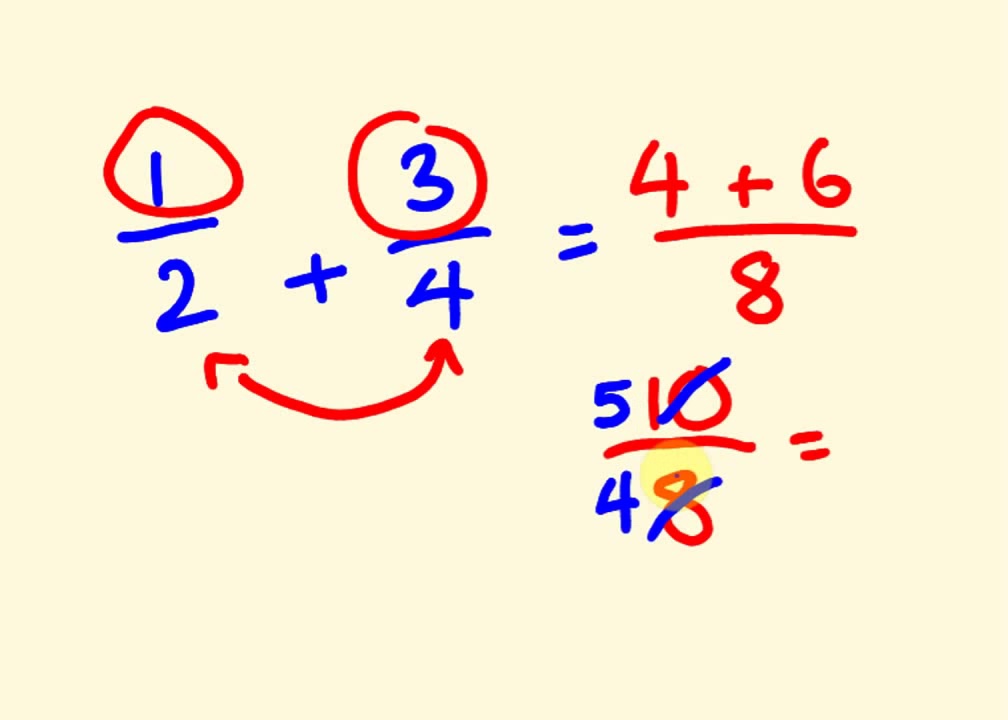 1/2 + 3/4 = (4 + 6)/8
5 10/4 8 =